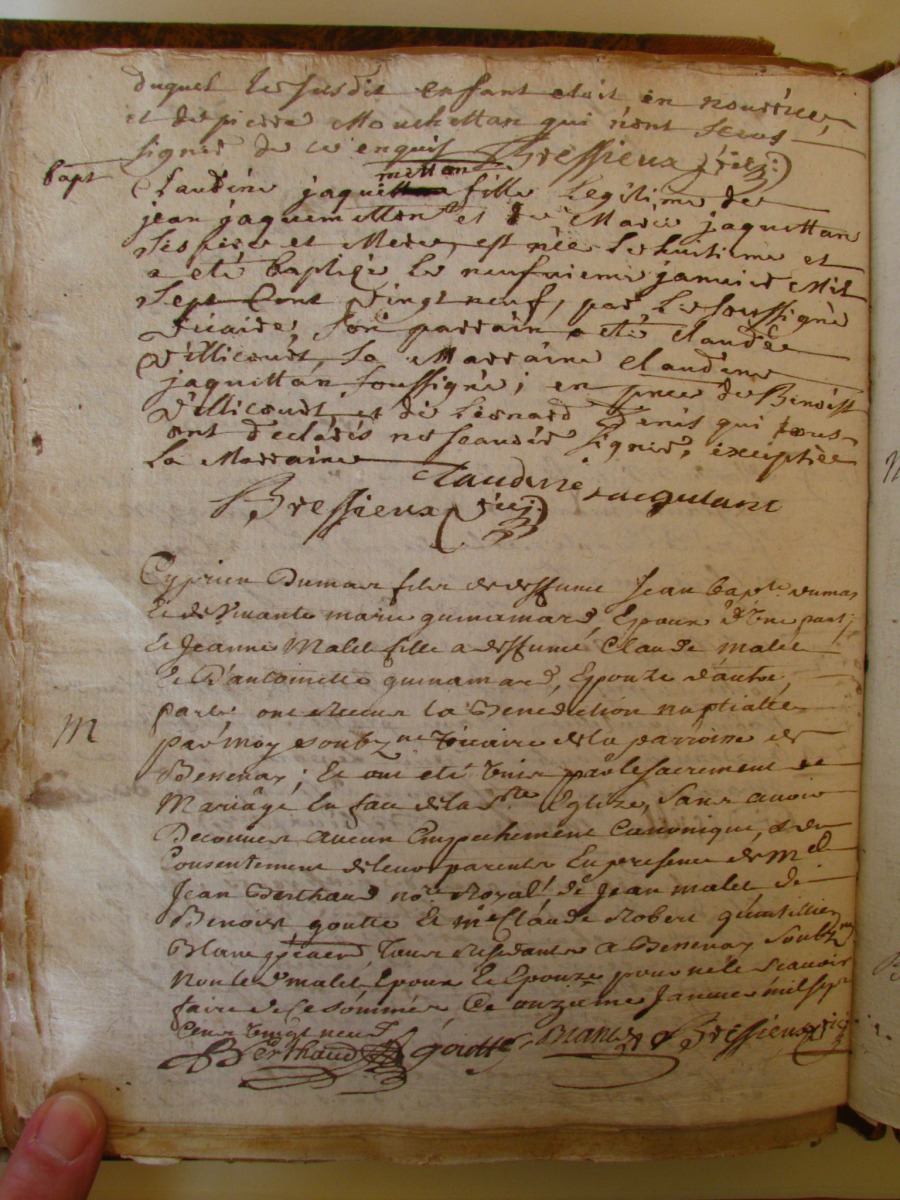 duquel le susdit enfant etoit en nourrice,
et de pierre Mouchettan qui n'ont sceus
signer de ce enquis Bressieux vic:
bapt
mettan
Claudine jaquettan fille Legitime de
jean jaquemettan et de Marie jaquettan
ses pere et Mere, est née le huitieme et
a eté baptisée le neufvieme janvier Mil
sept Cent vingt neuf, par Le soussigné
vicaire, son parrain a eté claude
villicourt, la Marraine claudine
jaquettan soussignée; en pnce de Benoist
villicourt, et de Leonard Denis qui tous
ont declarés ne scavoir signer, exceptée
La Marraine
claudine jacquetant
Bressieux vic:
Cyprien Dumas fils de deffunct Jean bapte. dumas
Et de vivante marie guinamard, Epoux d'Une part;
M
Et Jeanne Malet fille a deffunct Claude malet
Et D'antoinette guinamard, Epouze d'autre
parte ont Receu la Benediction nuptialle
par moy soubzne vicaire de la parroisse de
Bessenay; Et ont eté unis par le sacrement de
Mariage En face de la Ste Eglize, sans avoir
Deconnu aucun Empechement Canonique, & du
Consentement de leurs parents En presence de Me
Jean Berthaud nore Royal, de Jean malet, de
Benoist goutte Et Me Claude Robert
Blanc, tous Residants a Bessenay soubzne
Non led malet, Epoux Et Epouze pour ne le scavoir
faire de Ce sommés Ce onzieme Janvier mil sept
Cens vingt neuf
Berthaud goutte Blanc Bressieux vic: